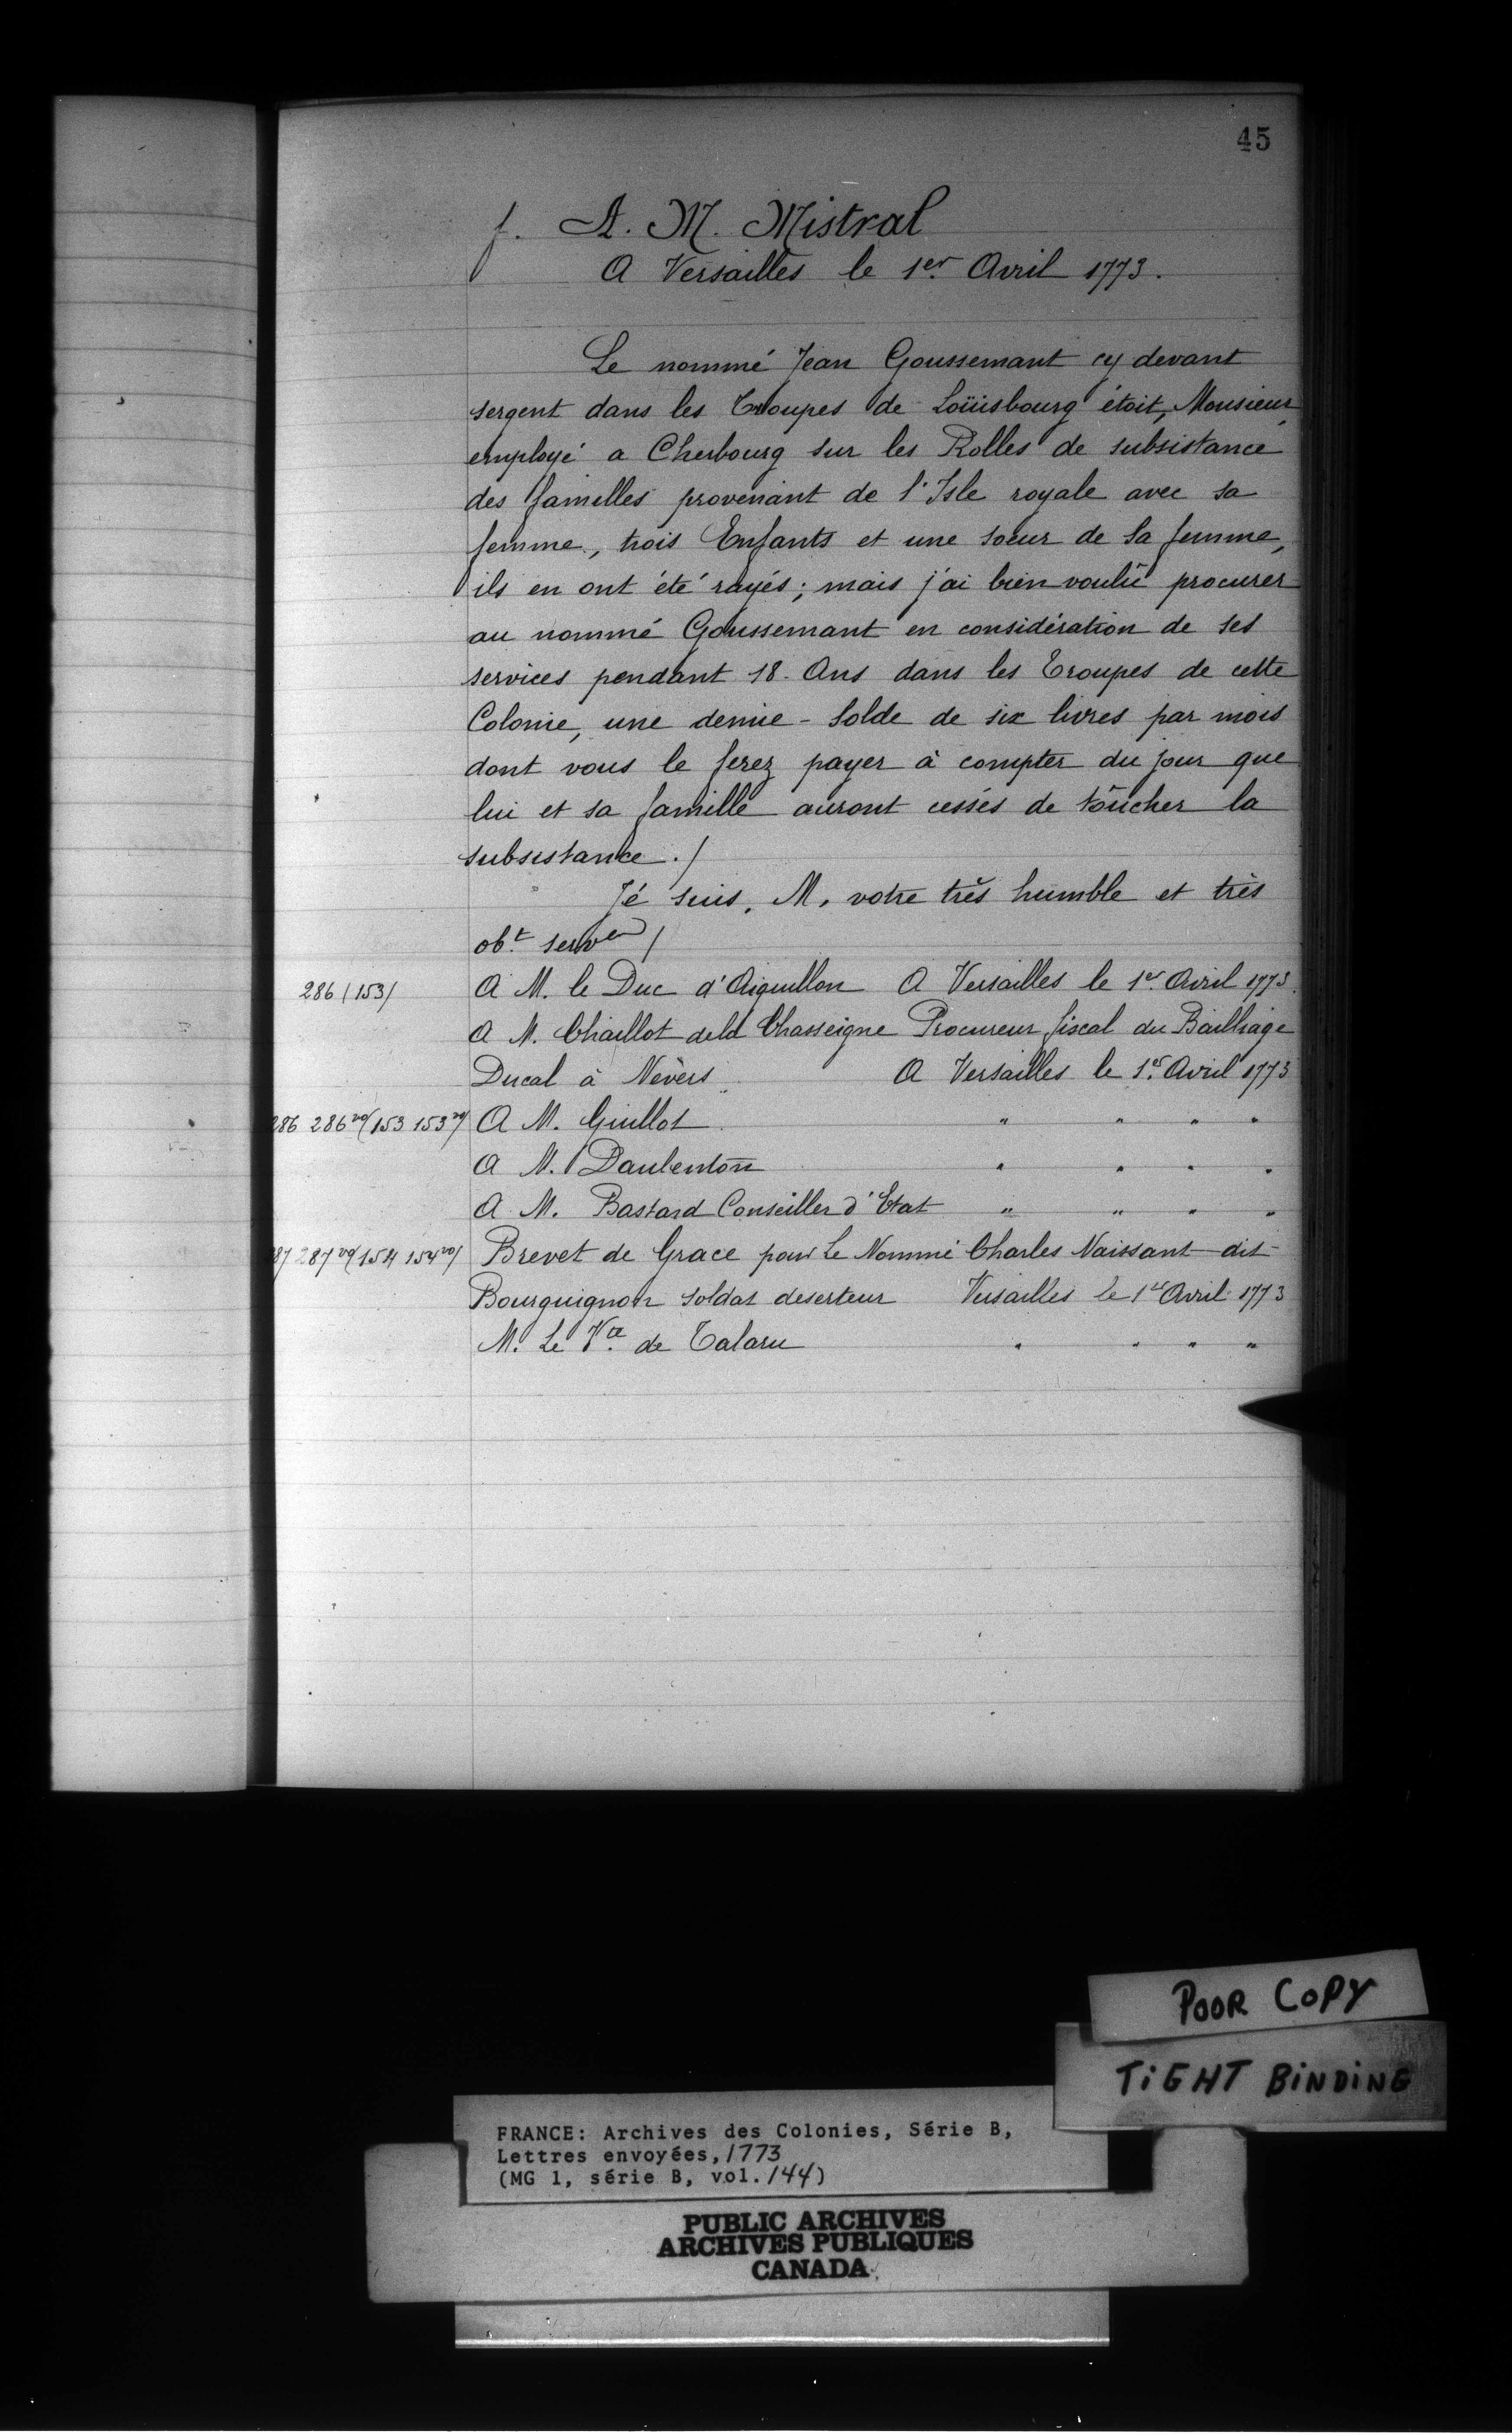 45
f. A. M. Mistral
A Versailles le 1er. Avril 1773.
Le nommé Jean Goussemant cy devant
sergent dans les Troupes de Loüisbourg étoit, Monsieur,
employé a Cherbourg sur les Rolles de subsistance
des familles provenant de l'Isle royale avec sa
femme, trois Enfants et une soeur de sa femme,
ils en ont été rayés; mais j'ai bien voulû procurer
au nommé Goussemant en considération de ses
services pendant 18. Ans dans les Troupes de cette
Colonie, une demie-solde de six livres par mois
dont vous le ferez payer à compter du jour que
lui et sa famille auront cessés de toûcher la
subsistance./
Jé suis, M, votre très humble et très
obt. serv /
286 (153) A M. le Duc d'Aiguillon A Versailles le 1er. Avril 1773.
A M. Chaillot dela Chasseigne Procureur fiscal du Bailliage
Ducal à Névers A Versailles le 1er. Avril 1773
286 286vo (153 153vo) A M. Guillot " " " "
A M. Daubenton " " " "
A M. Bastard Conseiller d'Etat " " " "
87 287vo (154 154vo) Brevet de Grace pour Le Nommé Charles Naissant dit
Bourguignon soldat deserteur Versailles le 1er Avril 1773
M. Le Vte. de Talaru " " " "
POOR COPY
TIGHT BINDING
FRANCE: Archives des Colonies, Série B,
Lettres envoyées, 1773
(MG 1, série B, vol. 144)
PUBLIC ARCHIVES
ARCHIVES PUBLIQUES
CANADA